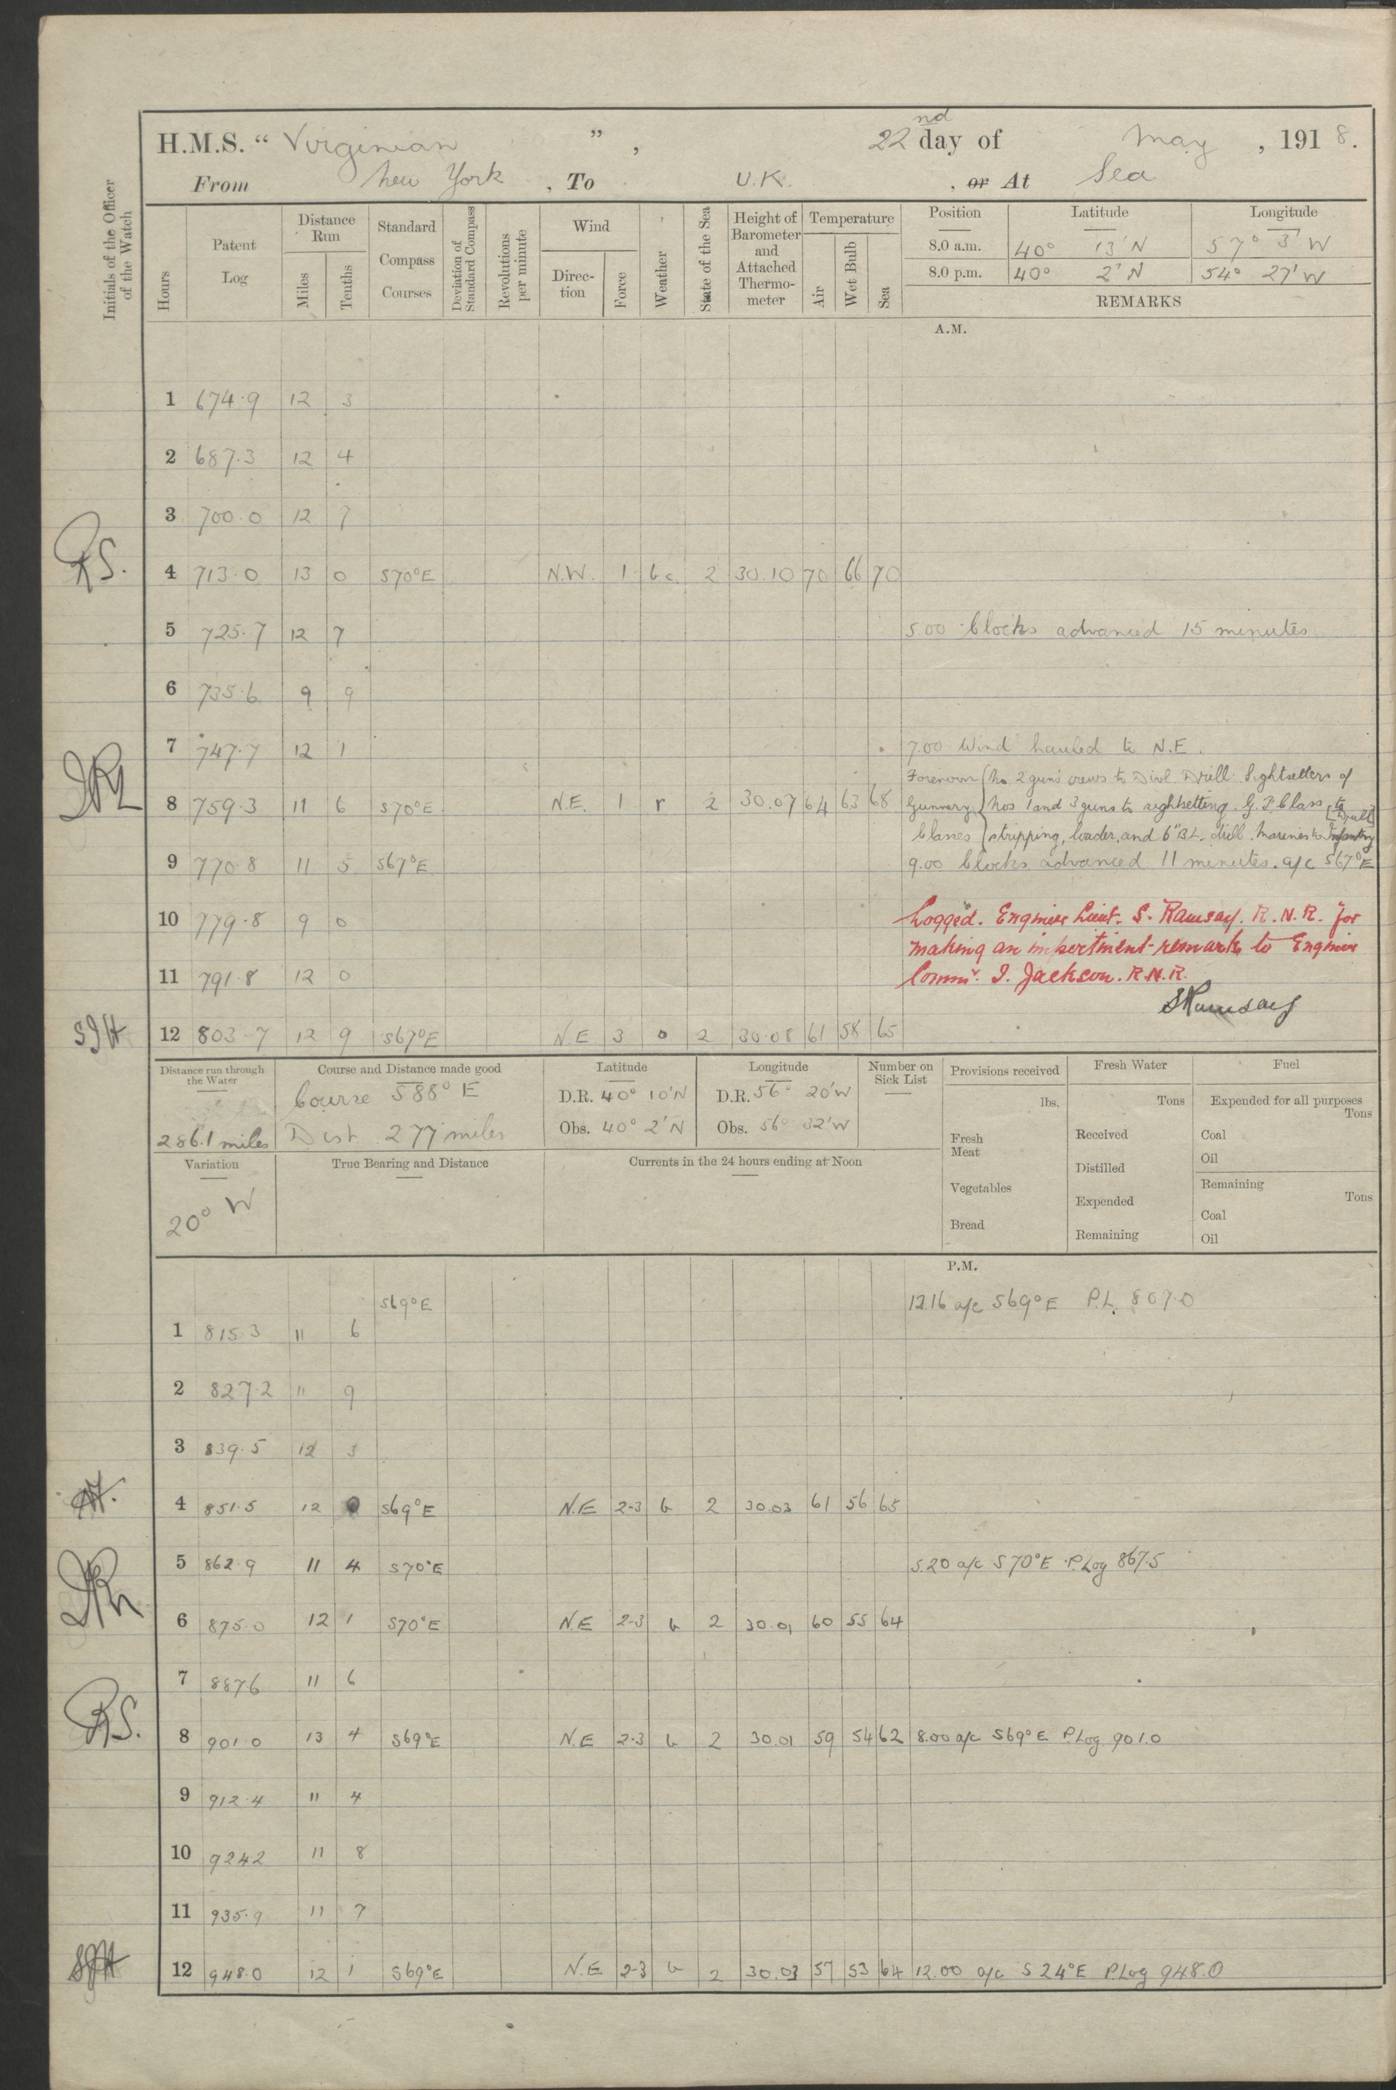 H.M.S. “ Virginian ” , 22nd day of May , 1918.
From New York , To U.K. , or At Sea
Initials of the Officer of the Watch
Hours Patent Log Distance Run Miles Tenths Standard Compass Courses Deviation of Standard Compass Revolutions per minute Wind Direc-tion Force Weather State of the Sea Height of Barometer and Attached Thermo-meter Temperature Air Wet Bulb Sea
Position Latitude Longitude
8.0 a.m. 40° 13' N 57° 3' W
8.0 p.m. 40° 2' N 54° 27' W
REMARKS
A.M.
1 674.9 12 3
2 687.3 12 4
3 700.0 12 7
RS. 4 713.0 13 0 S70°E N.W. 1 bc 2 30.10 70 66 70
5 725.7 12 7 5.00 Clocks advanced 15 minutes
6 735.6 9 9
7 747.7 12 1 7.00 Wind hauled to N.E.
Forenoon No 2 guns crews to Divl Drill. Sightsetters of
8 759.3 11 6 S70°E N.E. 1 r 2 30.07 64 63 68 Gunnery Nos 1 and 3 guns to sightsetting. G.L Class to
Classes stripping, loader, and 6" B.L. drill. Marines to Infantry [Drill]
9 770.8 11 5 S67°E 9.00 Clocks advanced 11 minutes. a/c S67°E
10 779.8 9 0 Logged. Engineer Lieut. S. Ramsay. R.N.R. "for
making an impertinent remark to Engineer
11 791.8 12 0 Commr. I. Jackson. R.N.R.
SRamsay
SJH 12 803.7 12 9 S67°E N.E 3 o 2 30.08 61 58 65
Distance run through the Water Course and Distance made good Latitude Longitude Number on Sick List Provisions received Fresh Water Fuel
Course S88° E D.R. 40° 10' N D.R. 56° 20' W lbs. Tons Expended for all purposes Tons
286.1 miles Dist 277 miles Obs. 40° 2' N Obs. 56° 32' W Fresh Meat Received Coal
Oil
Variation True Bearing and Distance Currents in the 24 hours ending at Noon Distilled
Vegetables Remaining Tons
20° W Expended Coal
Bread Remaining Oil
P.M.
S69°E 12.16 a/c S69°E P.L. 807.0
1 815.3 11 6
2 827.2 11 9
3 839.5 12 3
4 851.5 12 0 S69°E N.E 2-3 b 2 30.03 61 56 65
5 862.9 11 4 S70°E 5.20 a/c S70°E P.Log 867.5
6 875.0 12 1 S70°E N.E 2-3 b 2 30.01 60 55 64
7 887.6 11 6
RS. 8 901.0 13 4 S69°E N.E 2-3 b 2 30.01 59 54 62 8.00 a/c S69°E P.Log 901.0
9 912.4 11 4
10 924.2 11 8
11 935.9 11 7
SJH 12 948.0 12 1 S69°E N.E 2-3 b 2 30.03 57 53 64 12.00 a/c S24°E P.Log 948.0